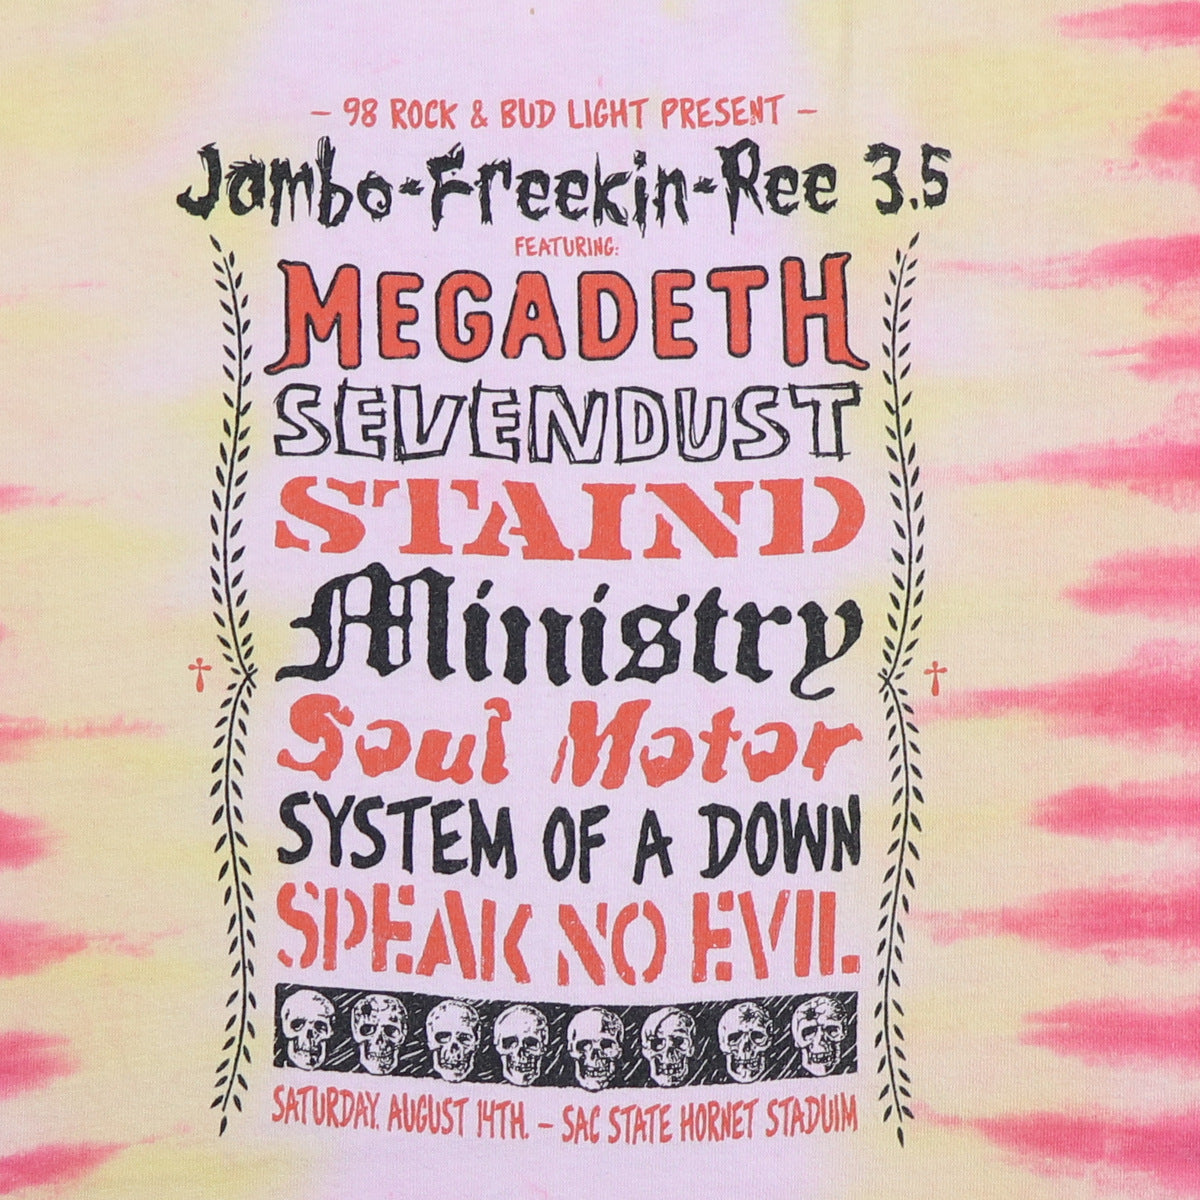 – 98 ROCK & BUD LIGHT PRESENT –
Jambo-Freekin-Ree 3.5
FEATURING:
MEGADETH
SEVENDUST
STAIND
Ministry
Soul Motor
SYSTEM OF A DOWN
SPEAK NO EVIL
SATURDAY, AUGUST 14TH. – SAC STATE HORNET STADUIM